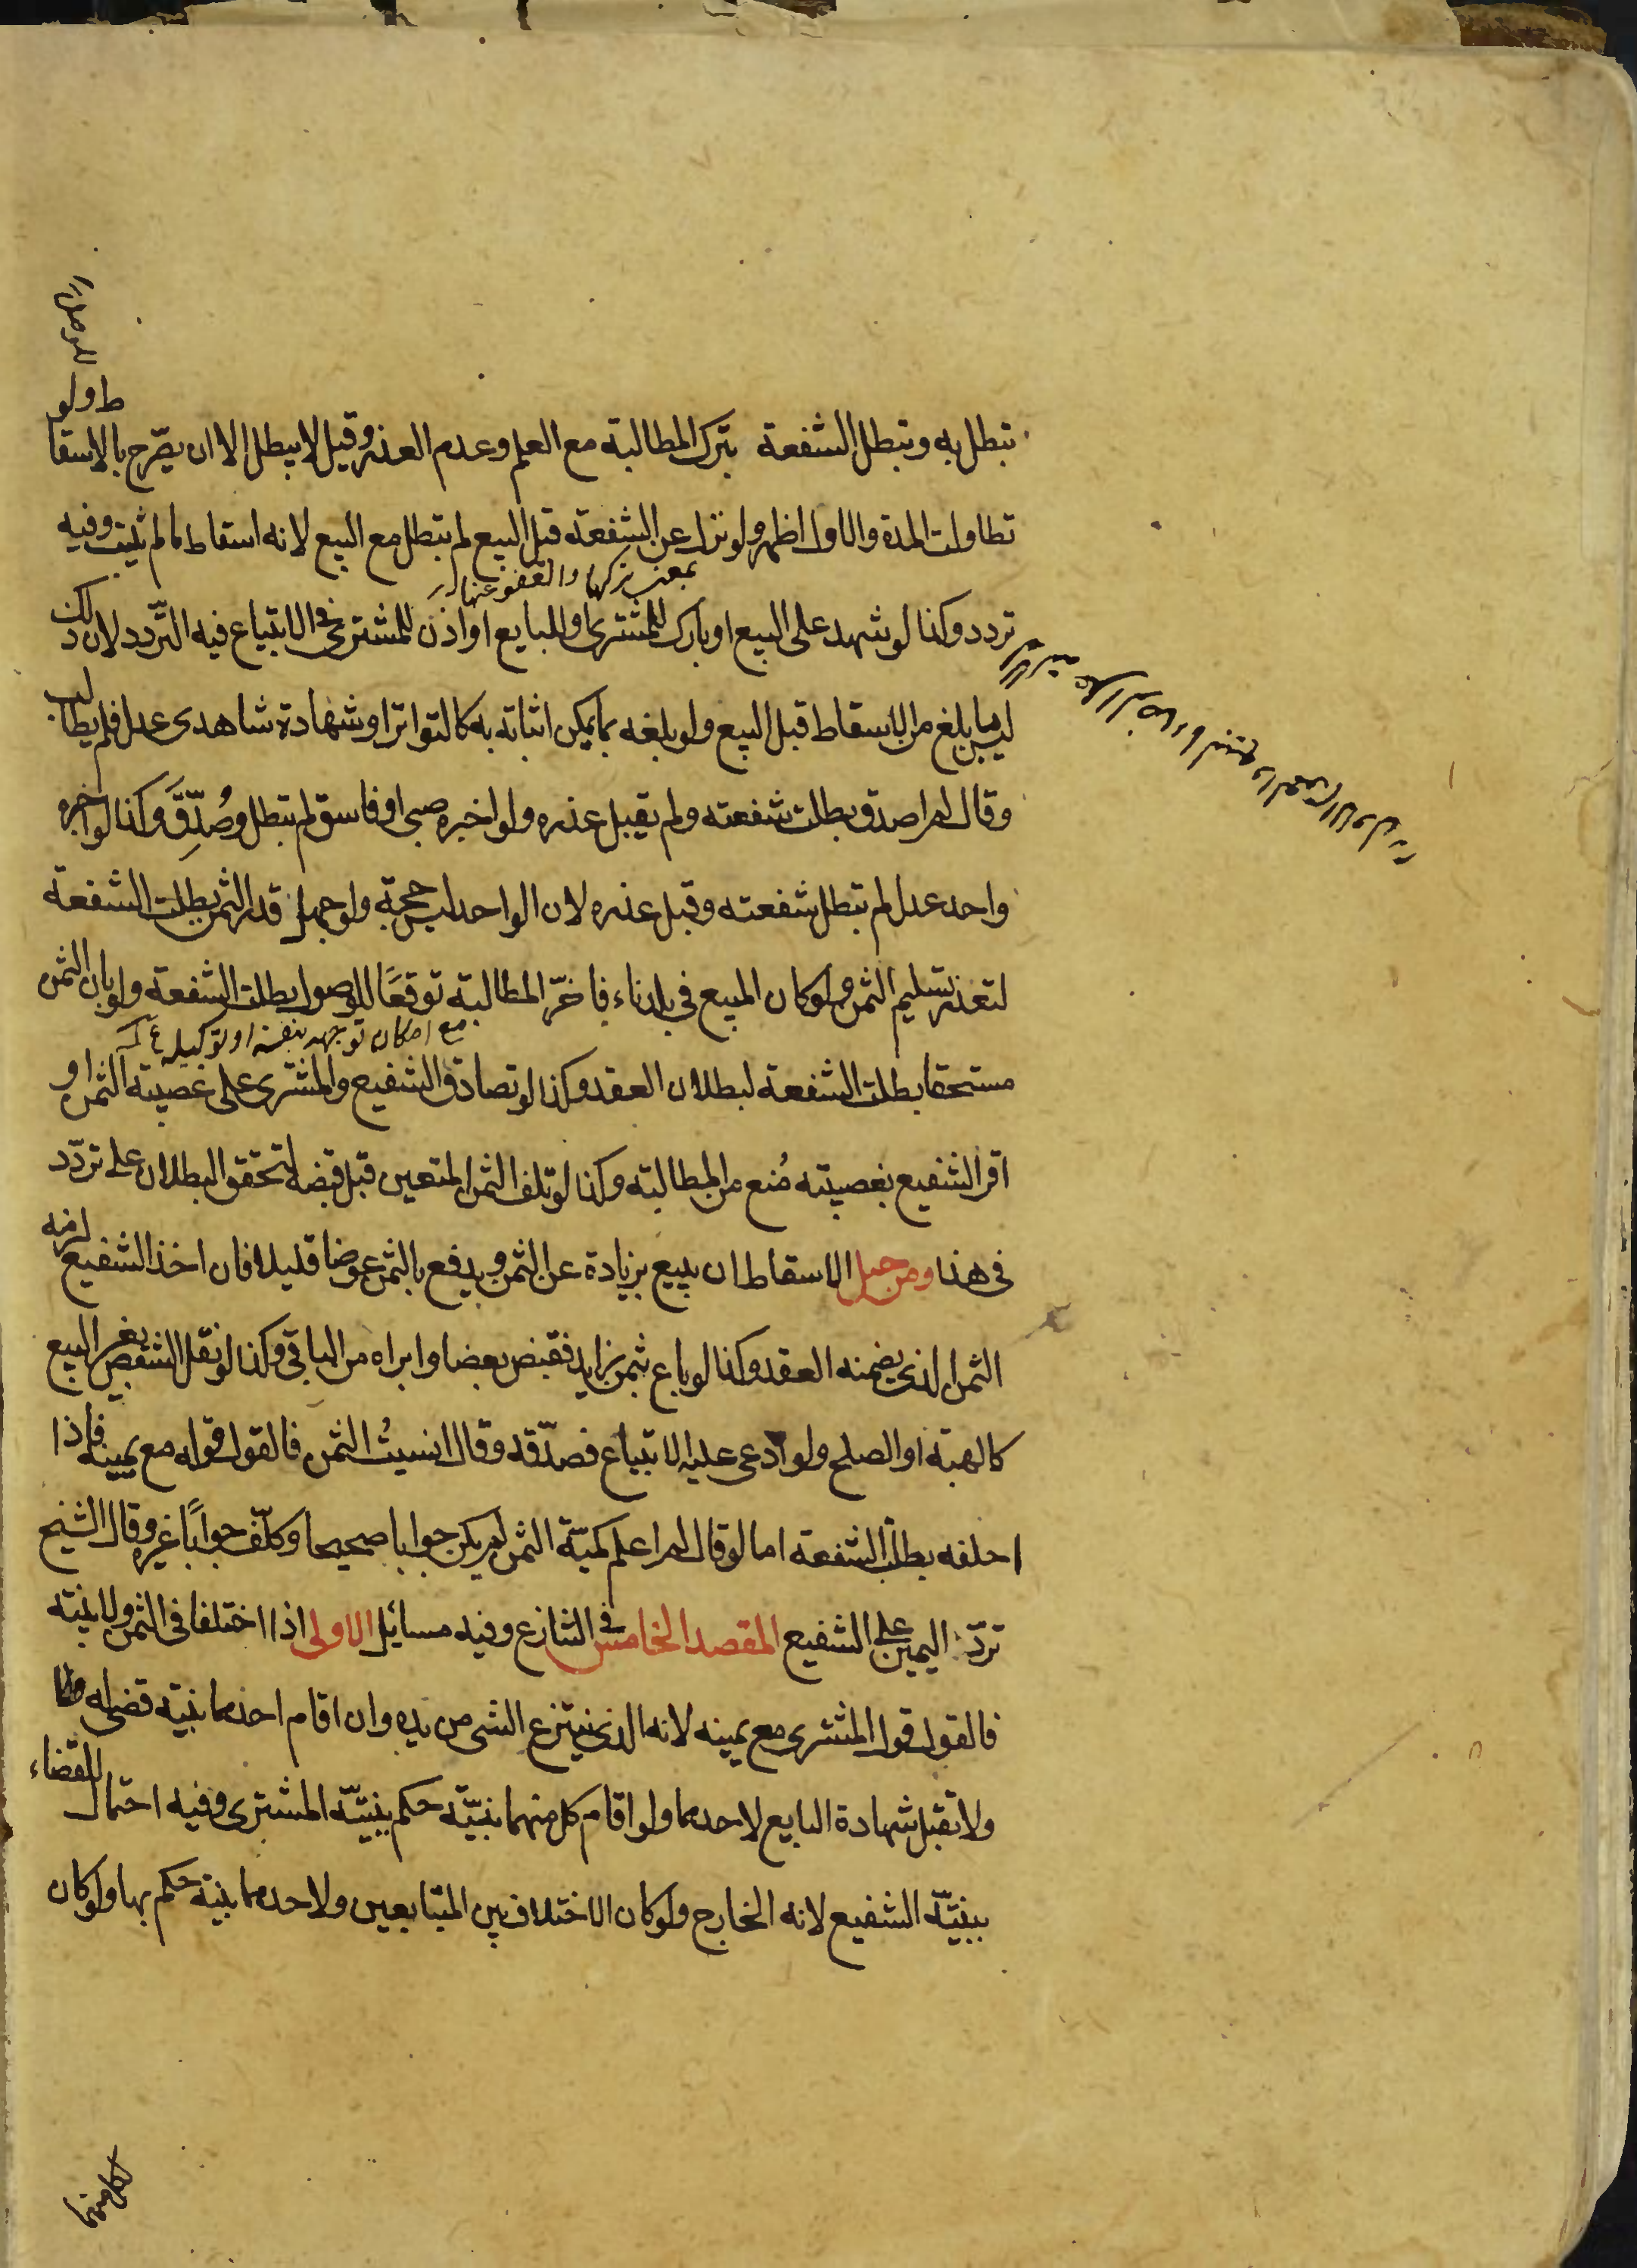 تبطل به وتبطل الشفعة بترك المطالبة مع العلم وعدم العذر وقيل لا يبطل الا ان يصّرح بالاسقا
ط ولو
تطاولت المدة والاول اظهر ولو نزل عن الشفعة قبل البيع لم تبطل مع البيع لانه اسقاط ما لم يثبت وفيه
تردد وكذا لو شهد على البيع او بارك للمشترى او للبايع او اذن للمشترى في الابتياع فيه التّردد لان ذلك
ليس بابلغ من الاسقاط قبل البيع ولو بلغه بما يمكن اثباته به كالتواتر او شهادة شاهدى عدل فلم يطالب
وقال لم اصدق بطلت شفعته ولم يقبل عذره ولو اخبره صبى او فاسق لم تبطل وصُدِّقَ وكذا لو اخبره
واحد عدل لم تبطل شفعته وقبل عذره لان الواحد ليس حجة ولو جهلا قدر الثمن بطلت الشفعة
لتعذر تسليم الثمن ولو كان المبيع في بلد ناء فاخّر المطالبة توقعًا للوصول بطلت الشفعة ولو بان الثمن
مع امكان توجهه بنفسه او توكيله
مستحقا بطلت الشفعة لبطلان العقد وكذا لو تصادق الشفيع والمشترى على غصبية الثمن او
اقر الشفيع بغصبيته مُنع من المطالبة وكذا لو تلف الثمن المتعين قبل قبضه لتحقق البطلان على تردّد
في هذا ومن حيل الاسقاط ان يبيع بزيادة عن الثمن ويدفع بالثمن عوضا قليلا فان اخذ الشفيع لزمه
الثمن الذى يضمنه العقد وكذا لو باع بثمن زايد فقبض بعضا وابراه من الباقى وكذا لو نقل الشقص بغير البيع
كالهبة او الصلح ولو ادعى عليه الابتياع فصدّقه وقال انسيتُ الثمن فالقول قوله مع يمينه فاذا
احلفه بطلت الشفعة اما لو قال لم اعلم كميّة الثمن لم يكن جوابا صحيحا وكلّف جوابًا غيره وقال الشيخ
تردّ اليمين على الشفيع المقصد الخامس في التنازع وفيه مسايل الاولى اذا اختلفا في الثمن ولا بينة
فالقول قول المشترى مع يمينه لانه الذى ينتزع الشى من يده وان اقام احدهما بينة قضى له
ولا تقبل شهادة البايع لاحدهما ولو اقام كل منهما بيّنة حكم ببيّنة المشترى وفيه احتمال للقضاء
ببيّنة الشفيع لانه الخارج ولو كان الاختلاف بين المتبايعين ولاحدهما بينة حكم بها ولو كان
لكل منهما